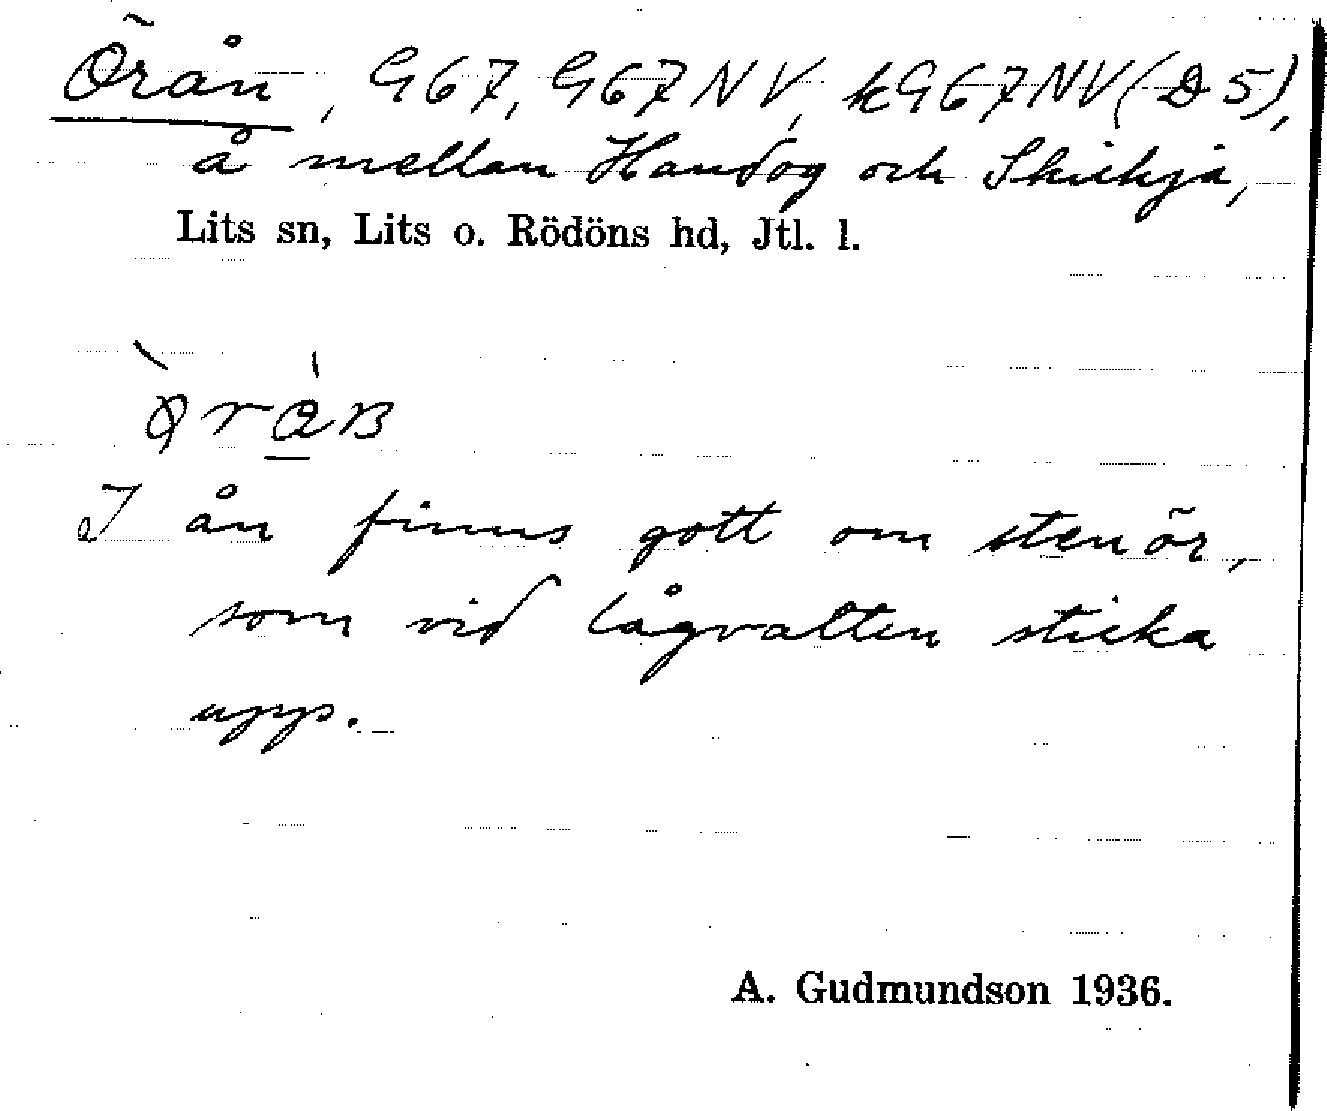 Örån, G67, G67NV, kG67NV(D5),
å mellan Handog och
Lits sn, Lits o. Rödöns hd, Jtl. l.
I ån finns gott om stenör,
som vid lågvatten sticka
upp.
A. Gudmundson 1936.